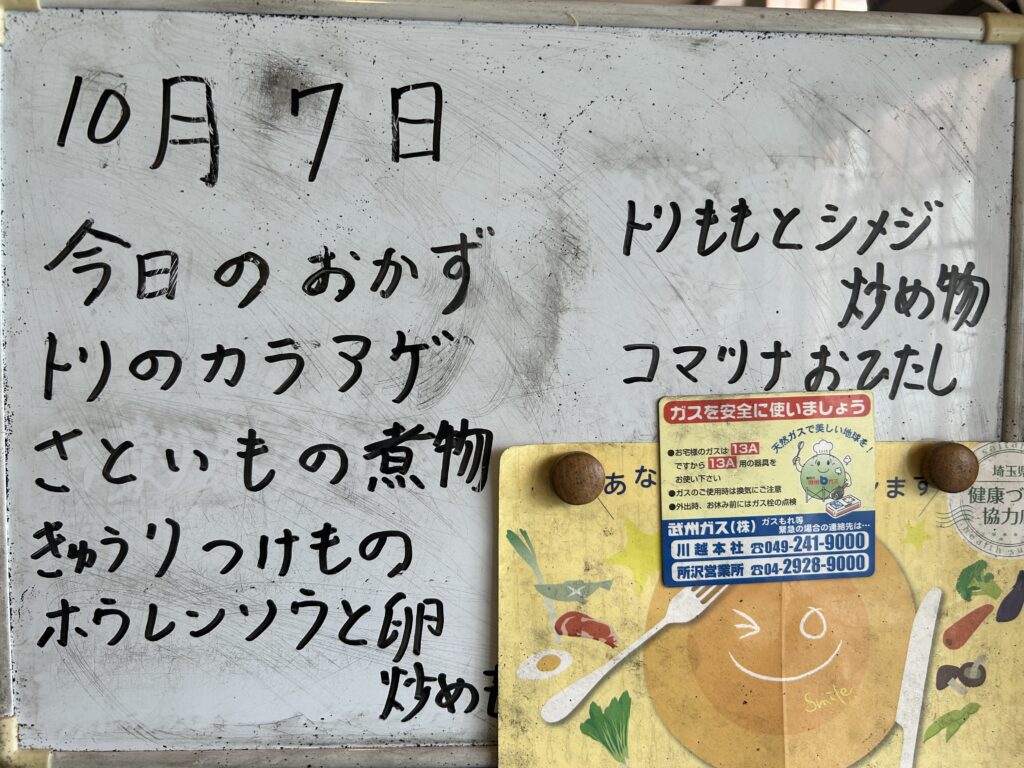 10月 7日
今日のおかず
トリのカラアゲ
さといもの煮物
きゅうりつけもの
ホウレンソウと卵
炒め
トリももとシメジ
炒め物
コマツナおひたし
ガスを安全に使いましょう
●お宅様のガスは 13A
ですから 13A 用の器具を
お使い下さい
●ガスのご使用時は換気にご注意
●外出時、お休み前にはガス栓の点検
天然ガスで美しい地球を!
武州ガス(株) ガスもれ等
緊急の場合の連絡先は…
川越本社 ☎049-241-9000
所沢営業所 ☎04-2928-9000
あな
ます
埼玉県
健康づ
協力店
Smile